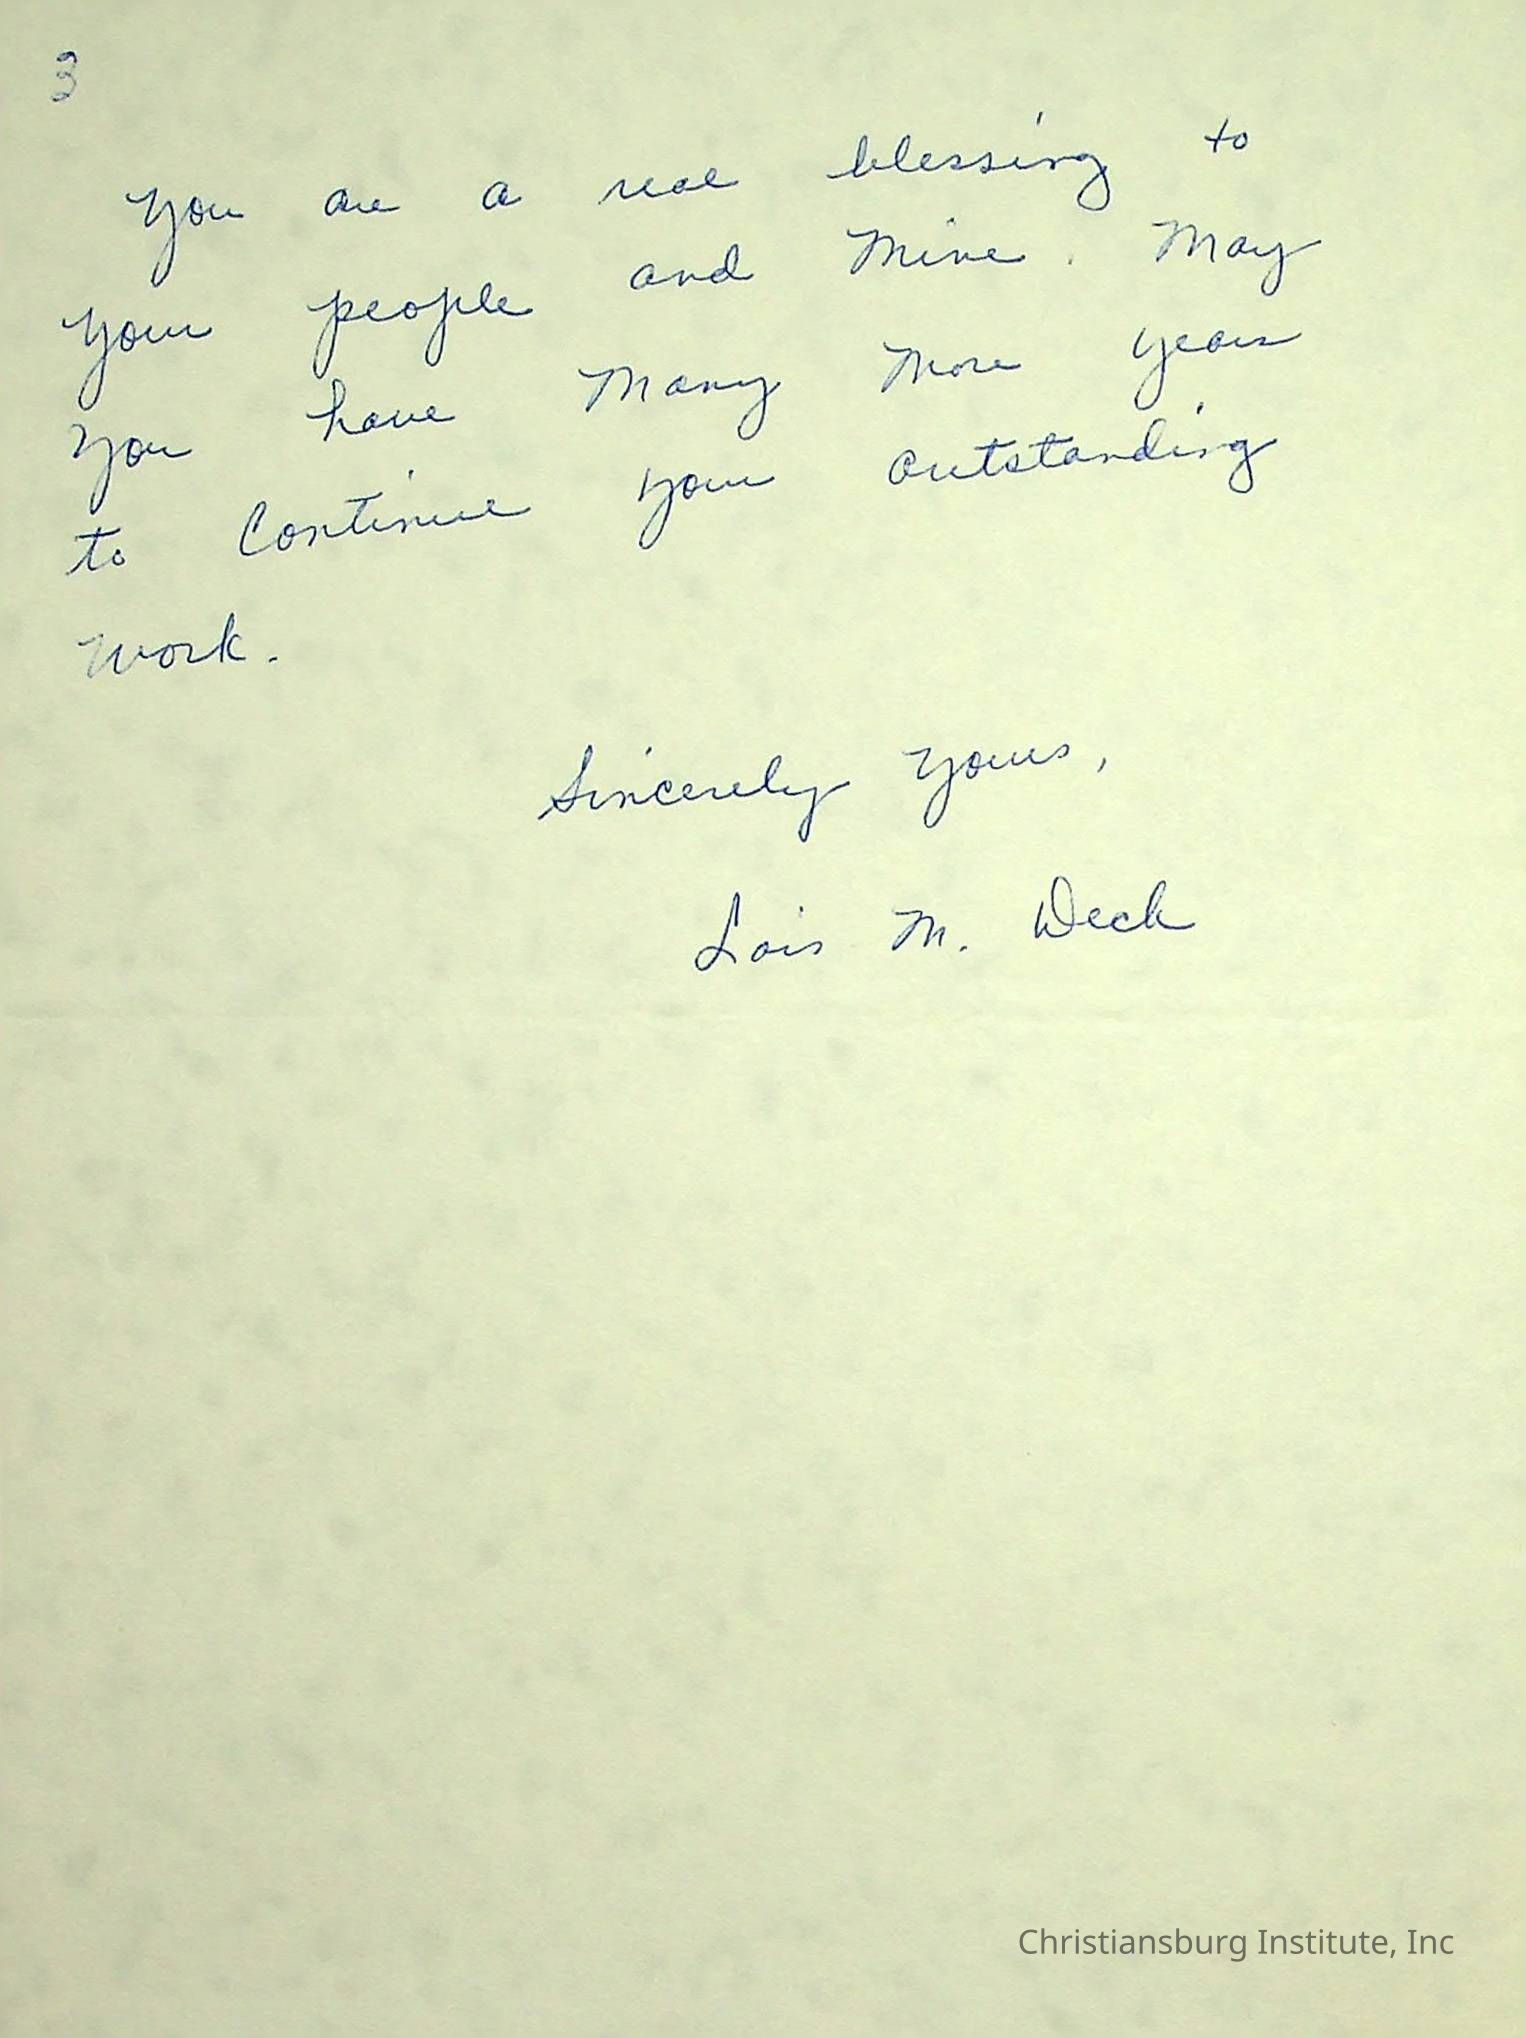 3
You are a real blessing to
your people and mine. May
you have many more years
to continue your outstanding
work.
Sincerely yours,
Lois M. Deck
Christiansburg Institute, Inc